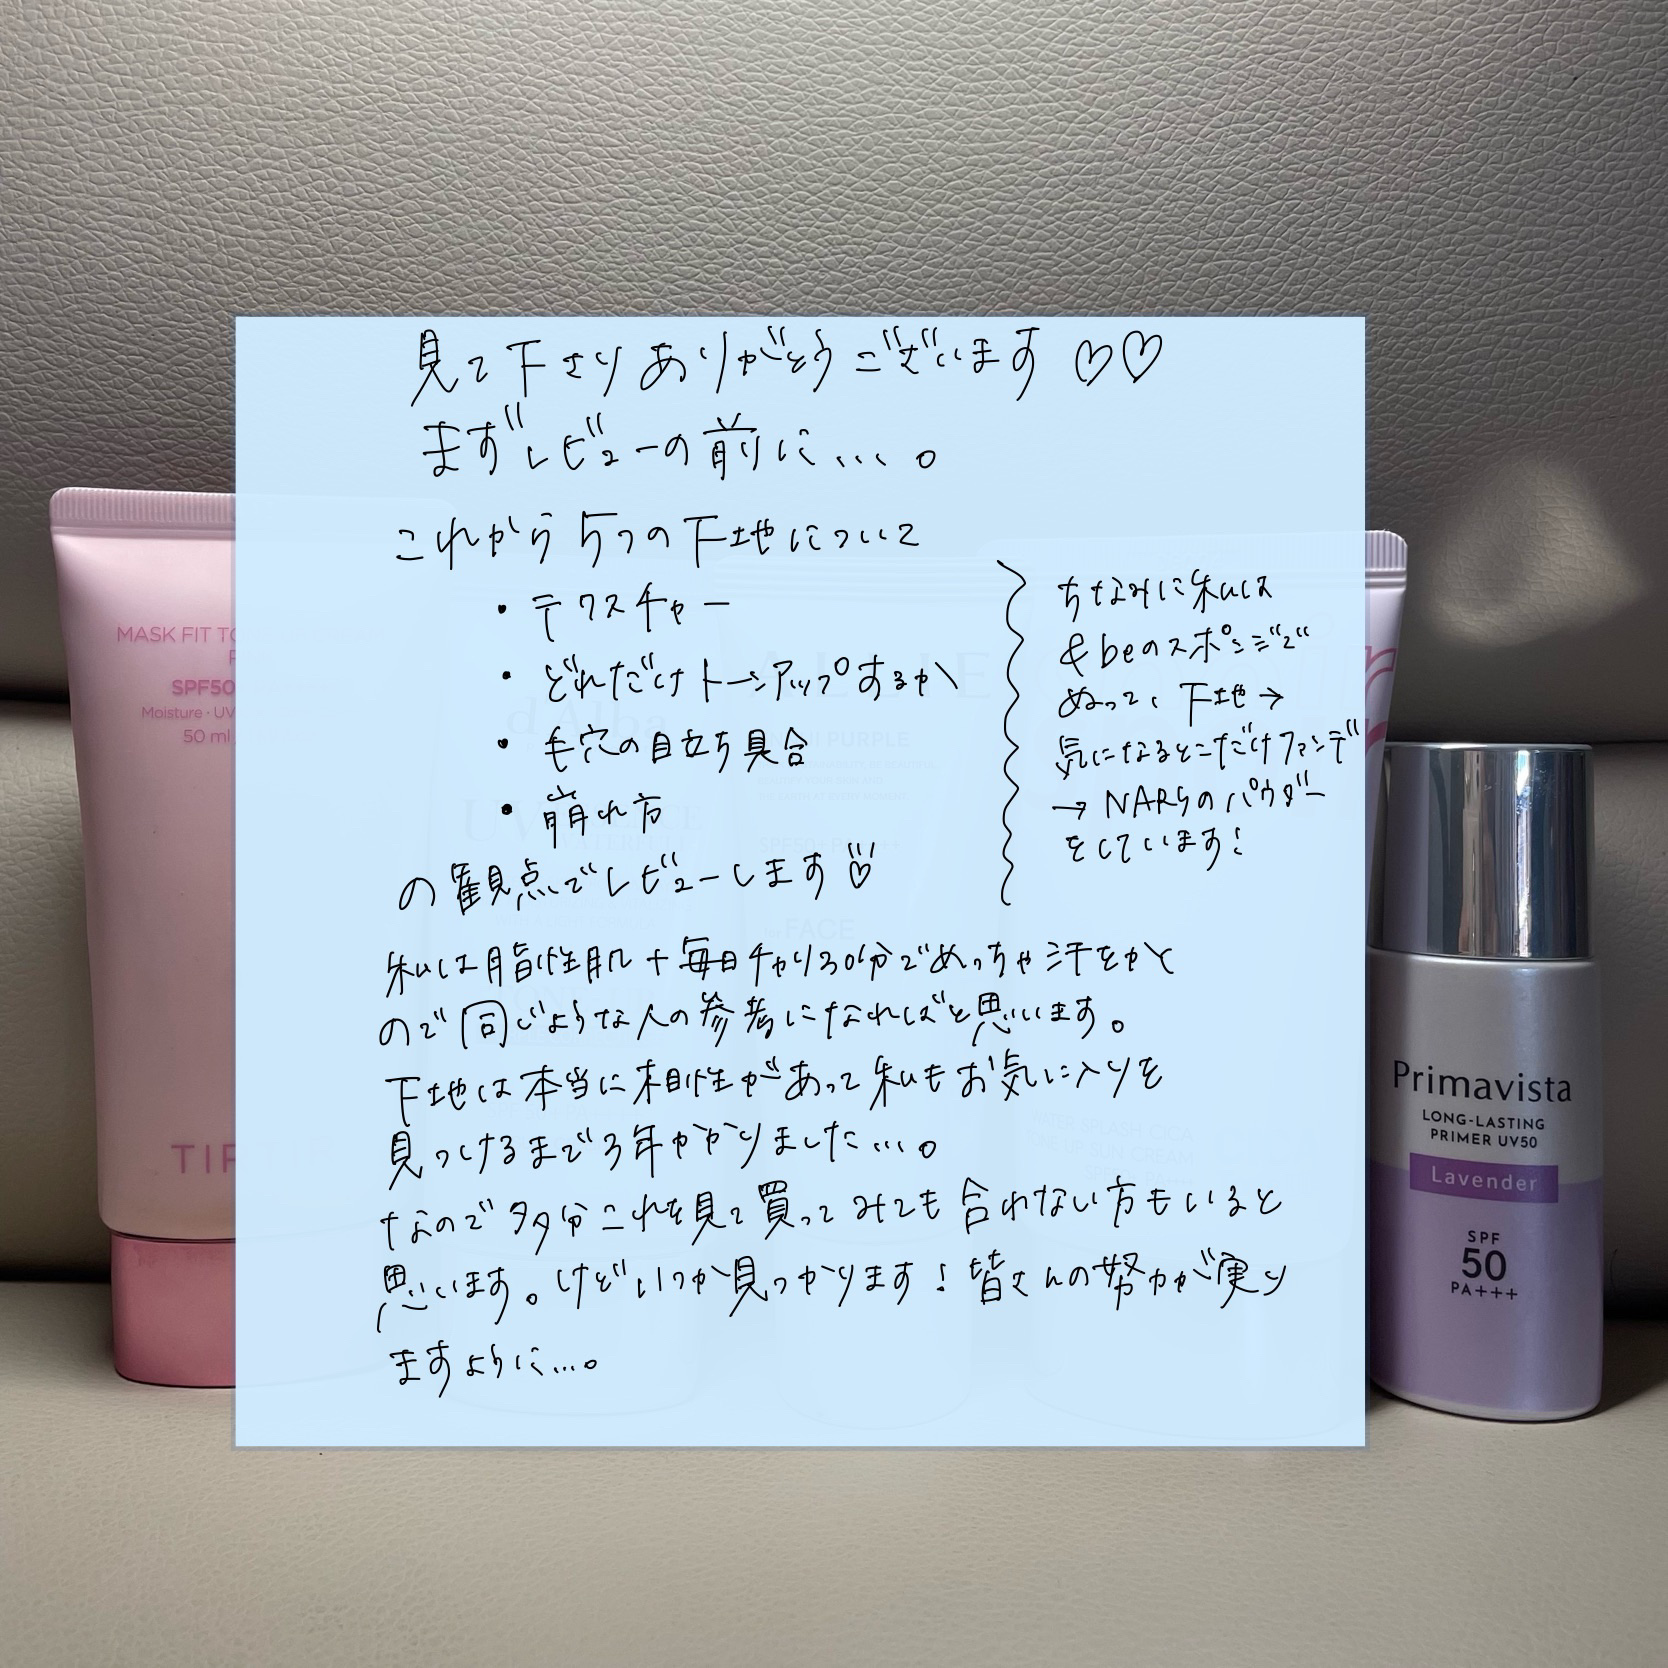 見て下さりありがとうございます♡♡
まずレビューの前に…。
これから5つの下地について
・テクスチャー
・どれだけトーンアップするか
・毛穴の目立ち具合
・崩れ方
の観点でレビューします♡
ちなみに私は
&beのスポンジで
ぬって、下地→
気になるとこだけファンデ
→NARSのパウダー
をしています!
私は脂性肌+毎日チャリ30分でめっちゃ汗をかく
ので同じような人の参考になればと思います。
下地は本当に相性があって私もお気に入りを
見つけるまで3年かかりました…。
なので多分これを見て買ってみても合わない方もいると
思います。けどいつか見つかります!皆さんの努力が実り
ますように…。
MASK FIT TO
SPF50
Moisture · UV
50 ml
TIR
d'Alba
UV
PURPLE
FACE
WATER SPLASH CICA
TONE UP SUN CREAM
Primavista
LONG-LASTING
PRIMER UV50
Lavender
SPF
50
PA+++